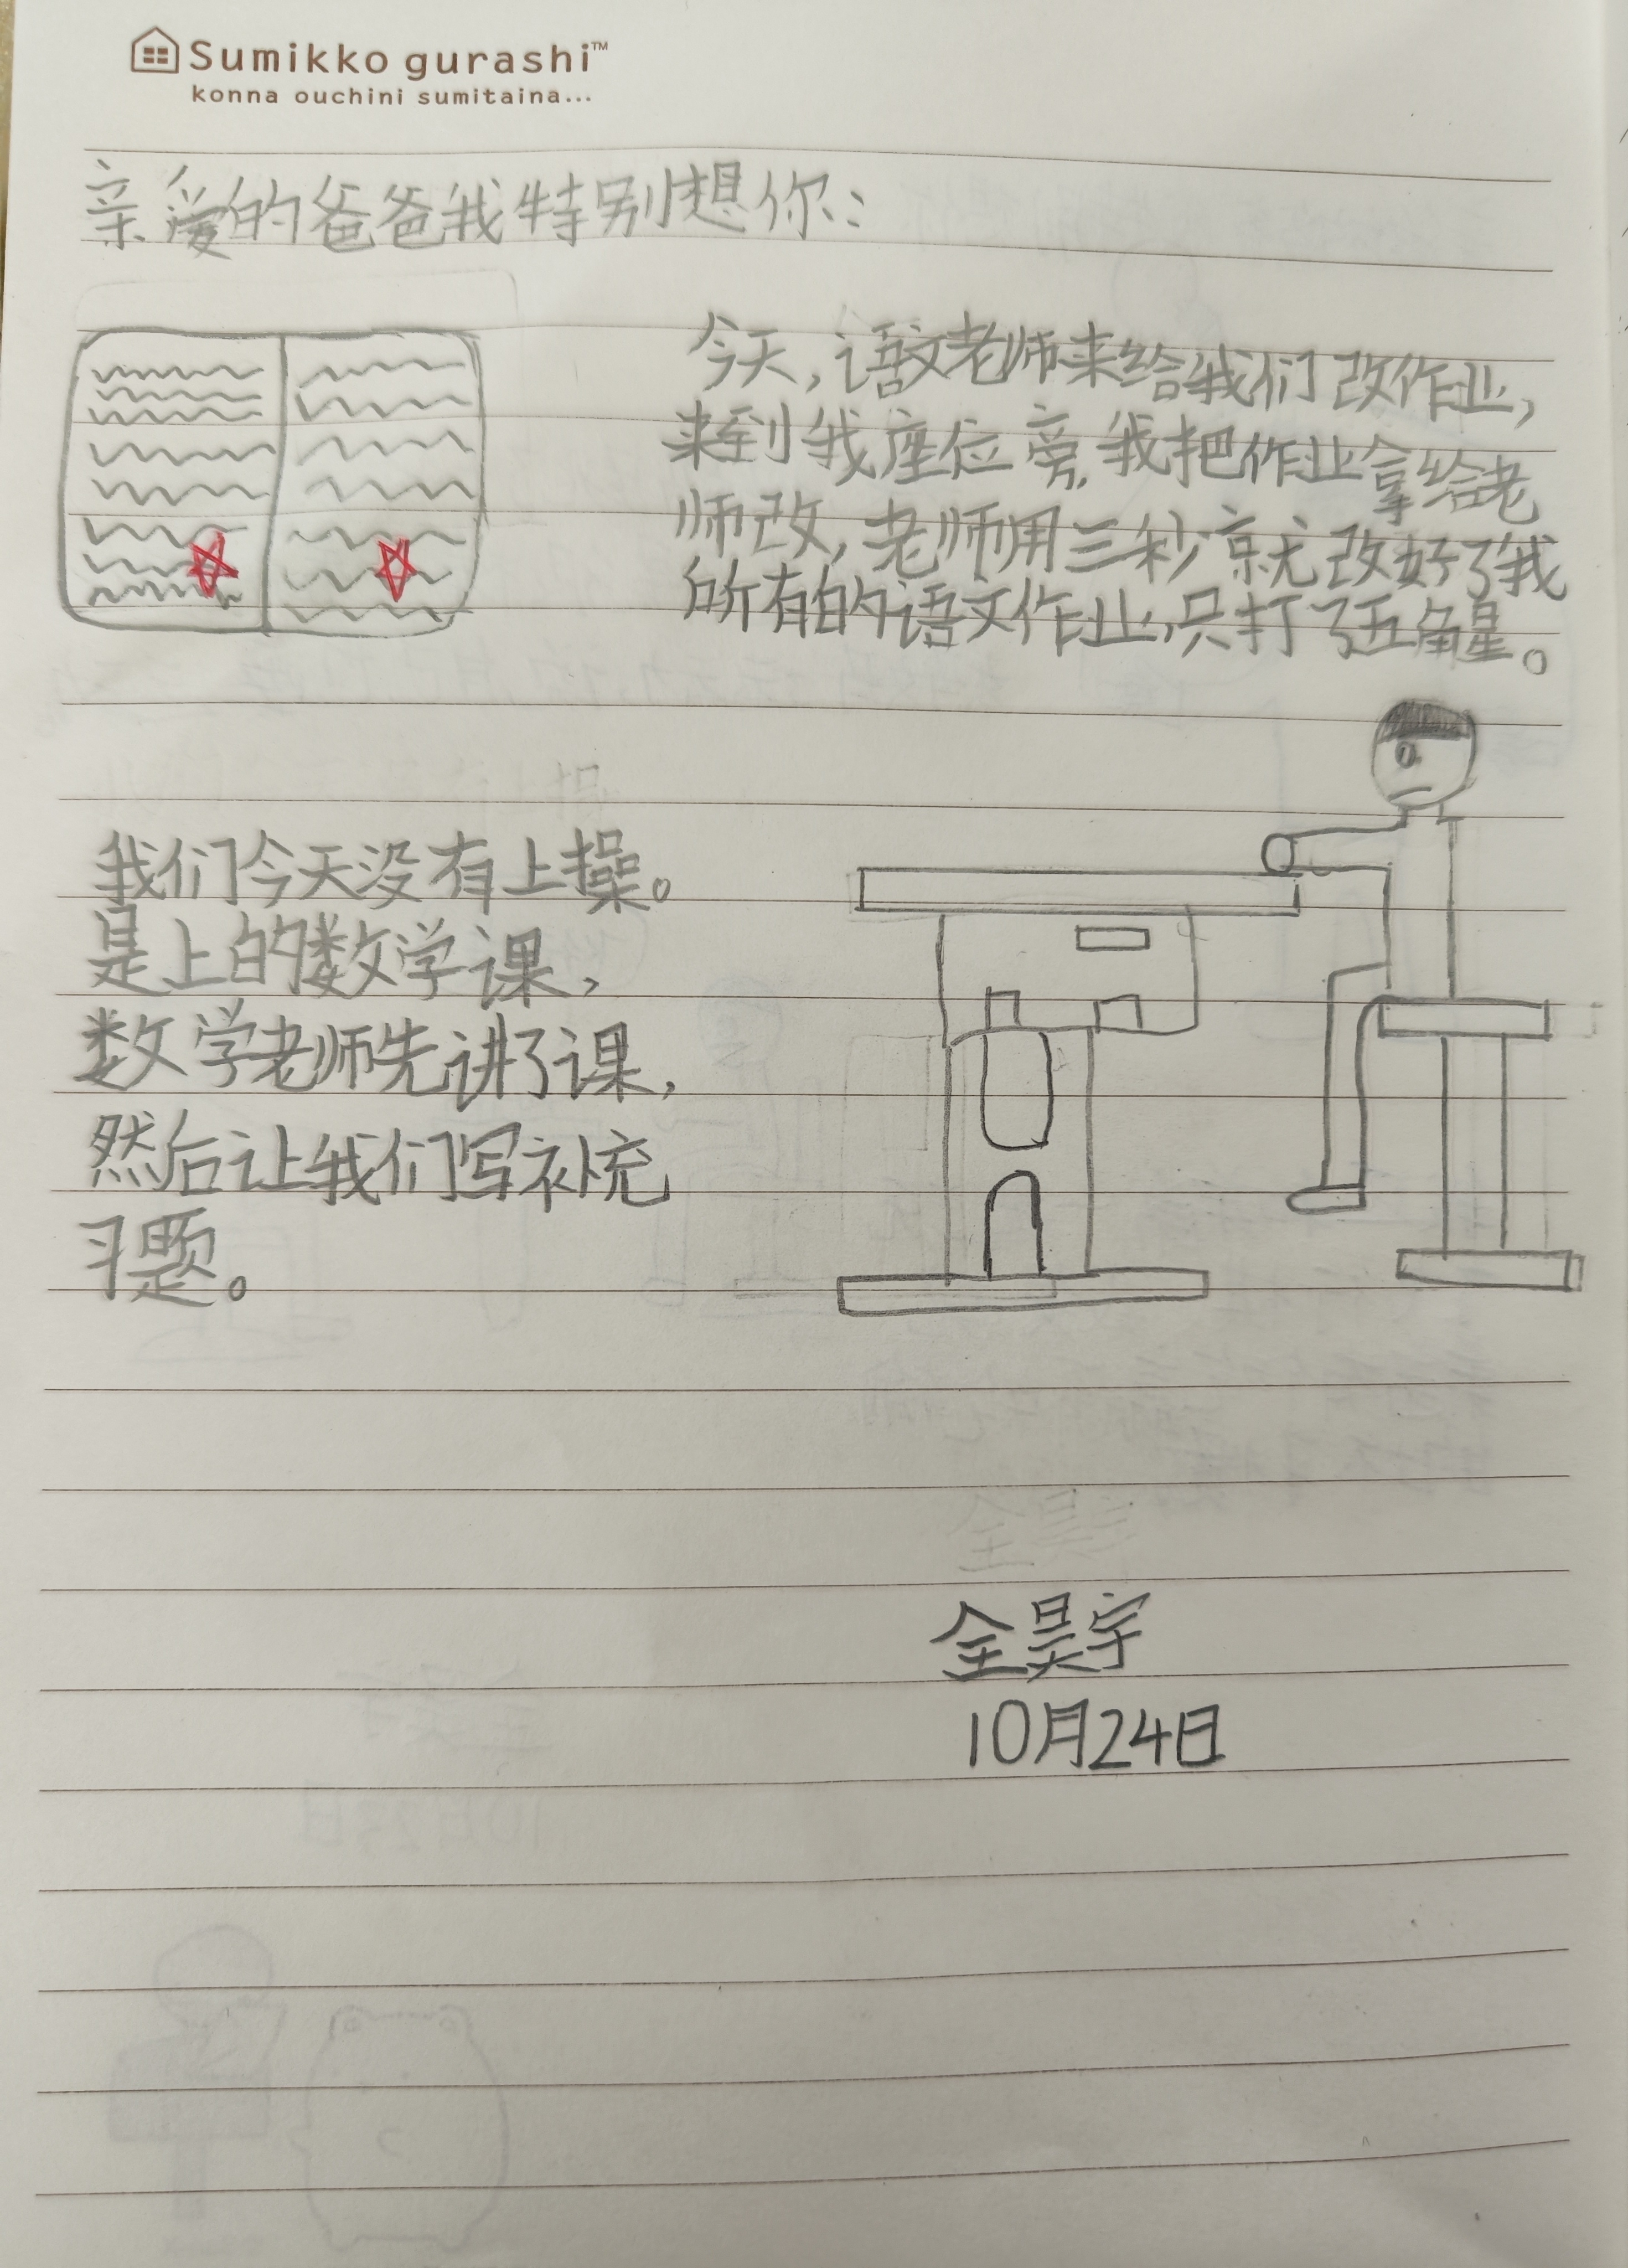 Sumikko gurashi™
konna ouchini sumitaina...
亲爱的爸爸我特别想你:
今天,语文老师来给我们改作业,
来到我座位旁,我把作业拿给老
师改,老师用三秒就改好了我
所有的语文作业,只打了五角星。
我们今天没有上操。
是上的数学课,
数学老师先讲了课,
然后让我们写补充
习题。
全昊宇
10月24日